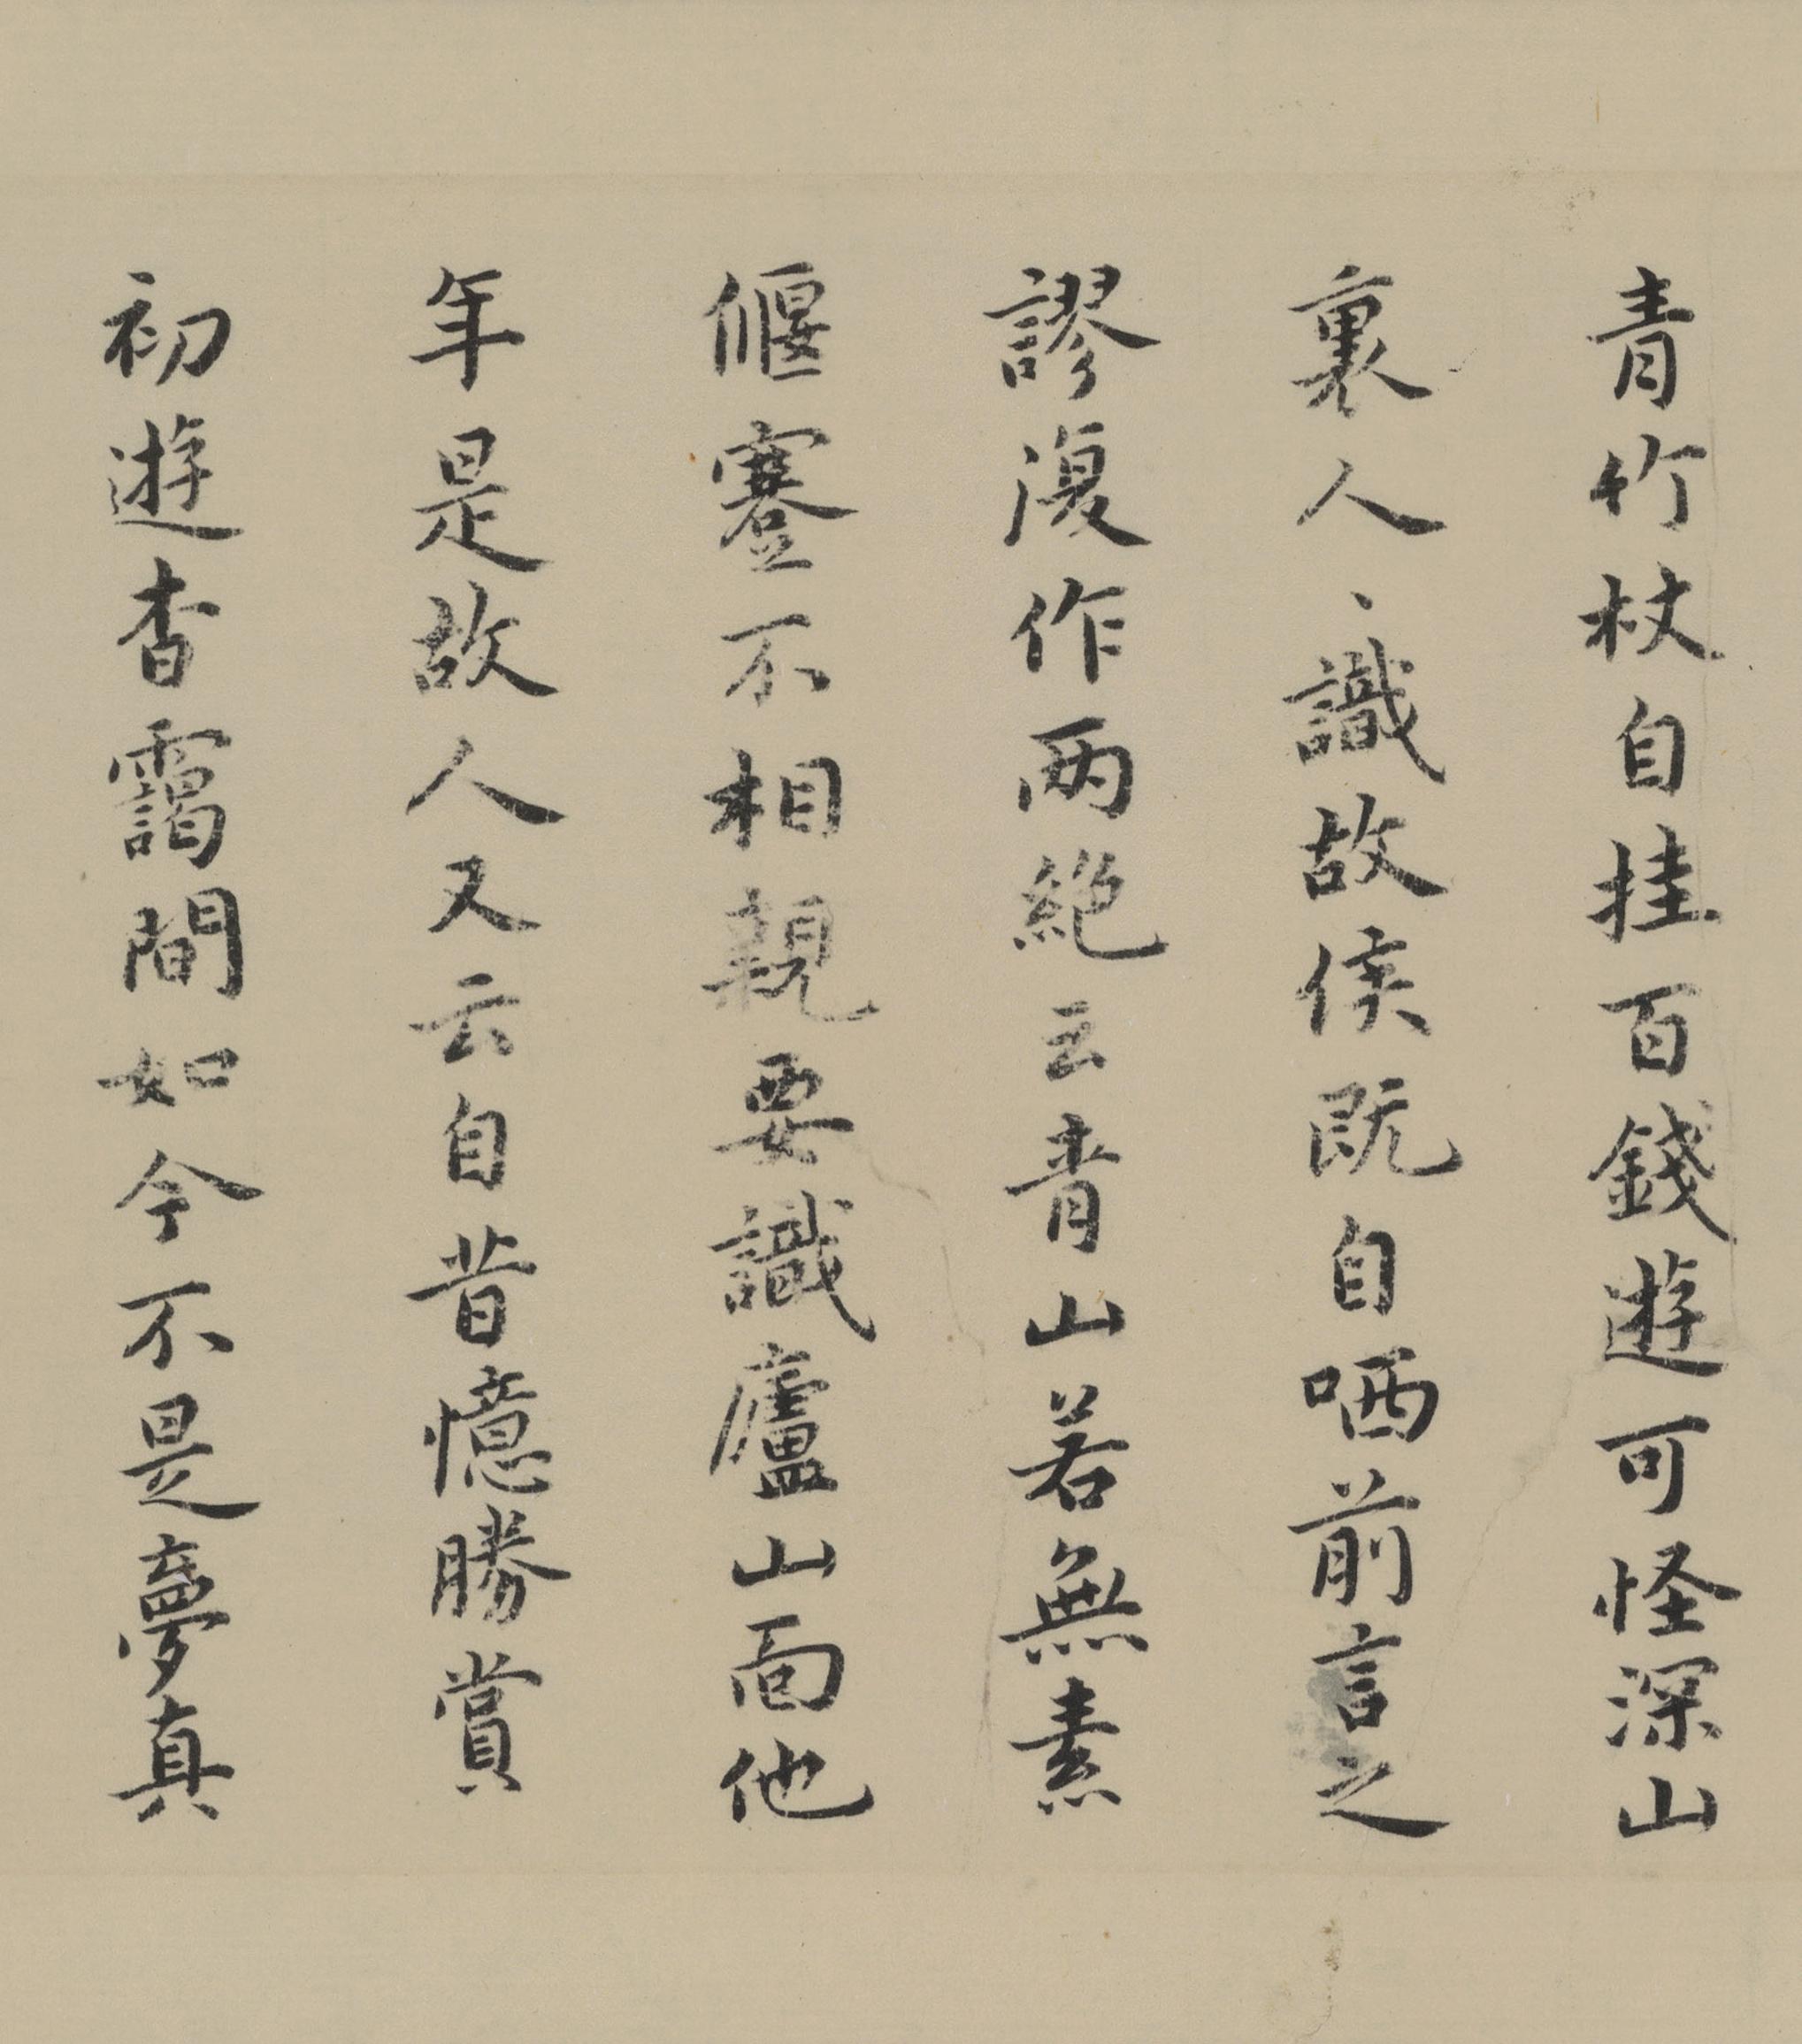 青竹杖自挂百錢遊可怪深山
裏人〻識故侯既自哂前言之
謬復作兩絕云青山若無素
偃蹇不相親要識廬山面他
年是故人又云自昔憶勝賞
初遊杳靄間如今不是夢真